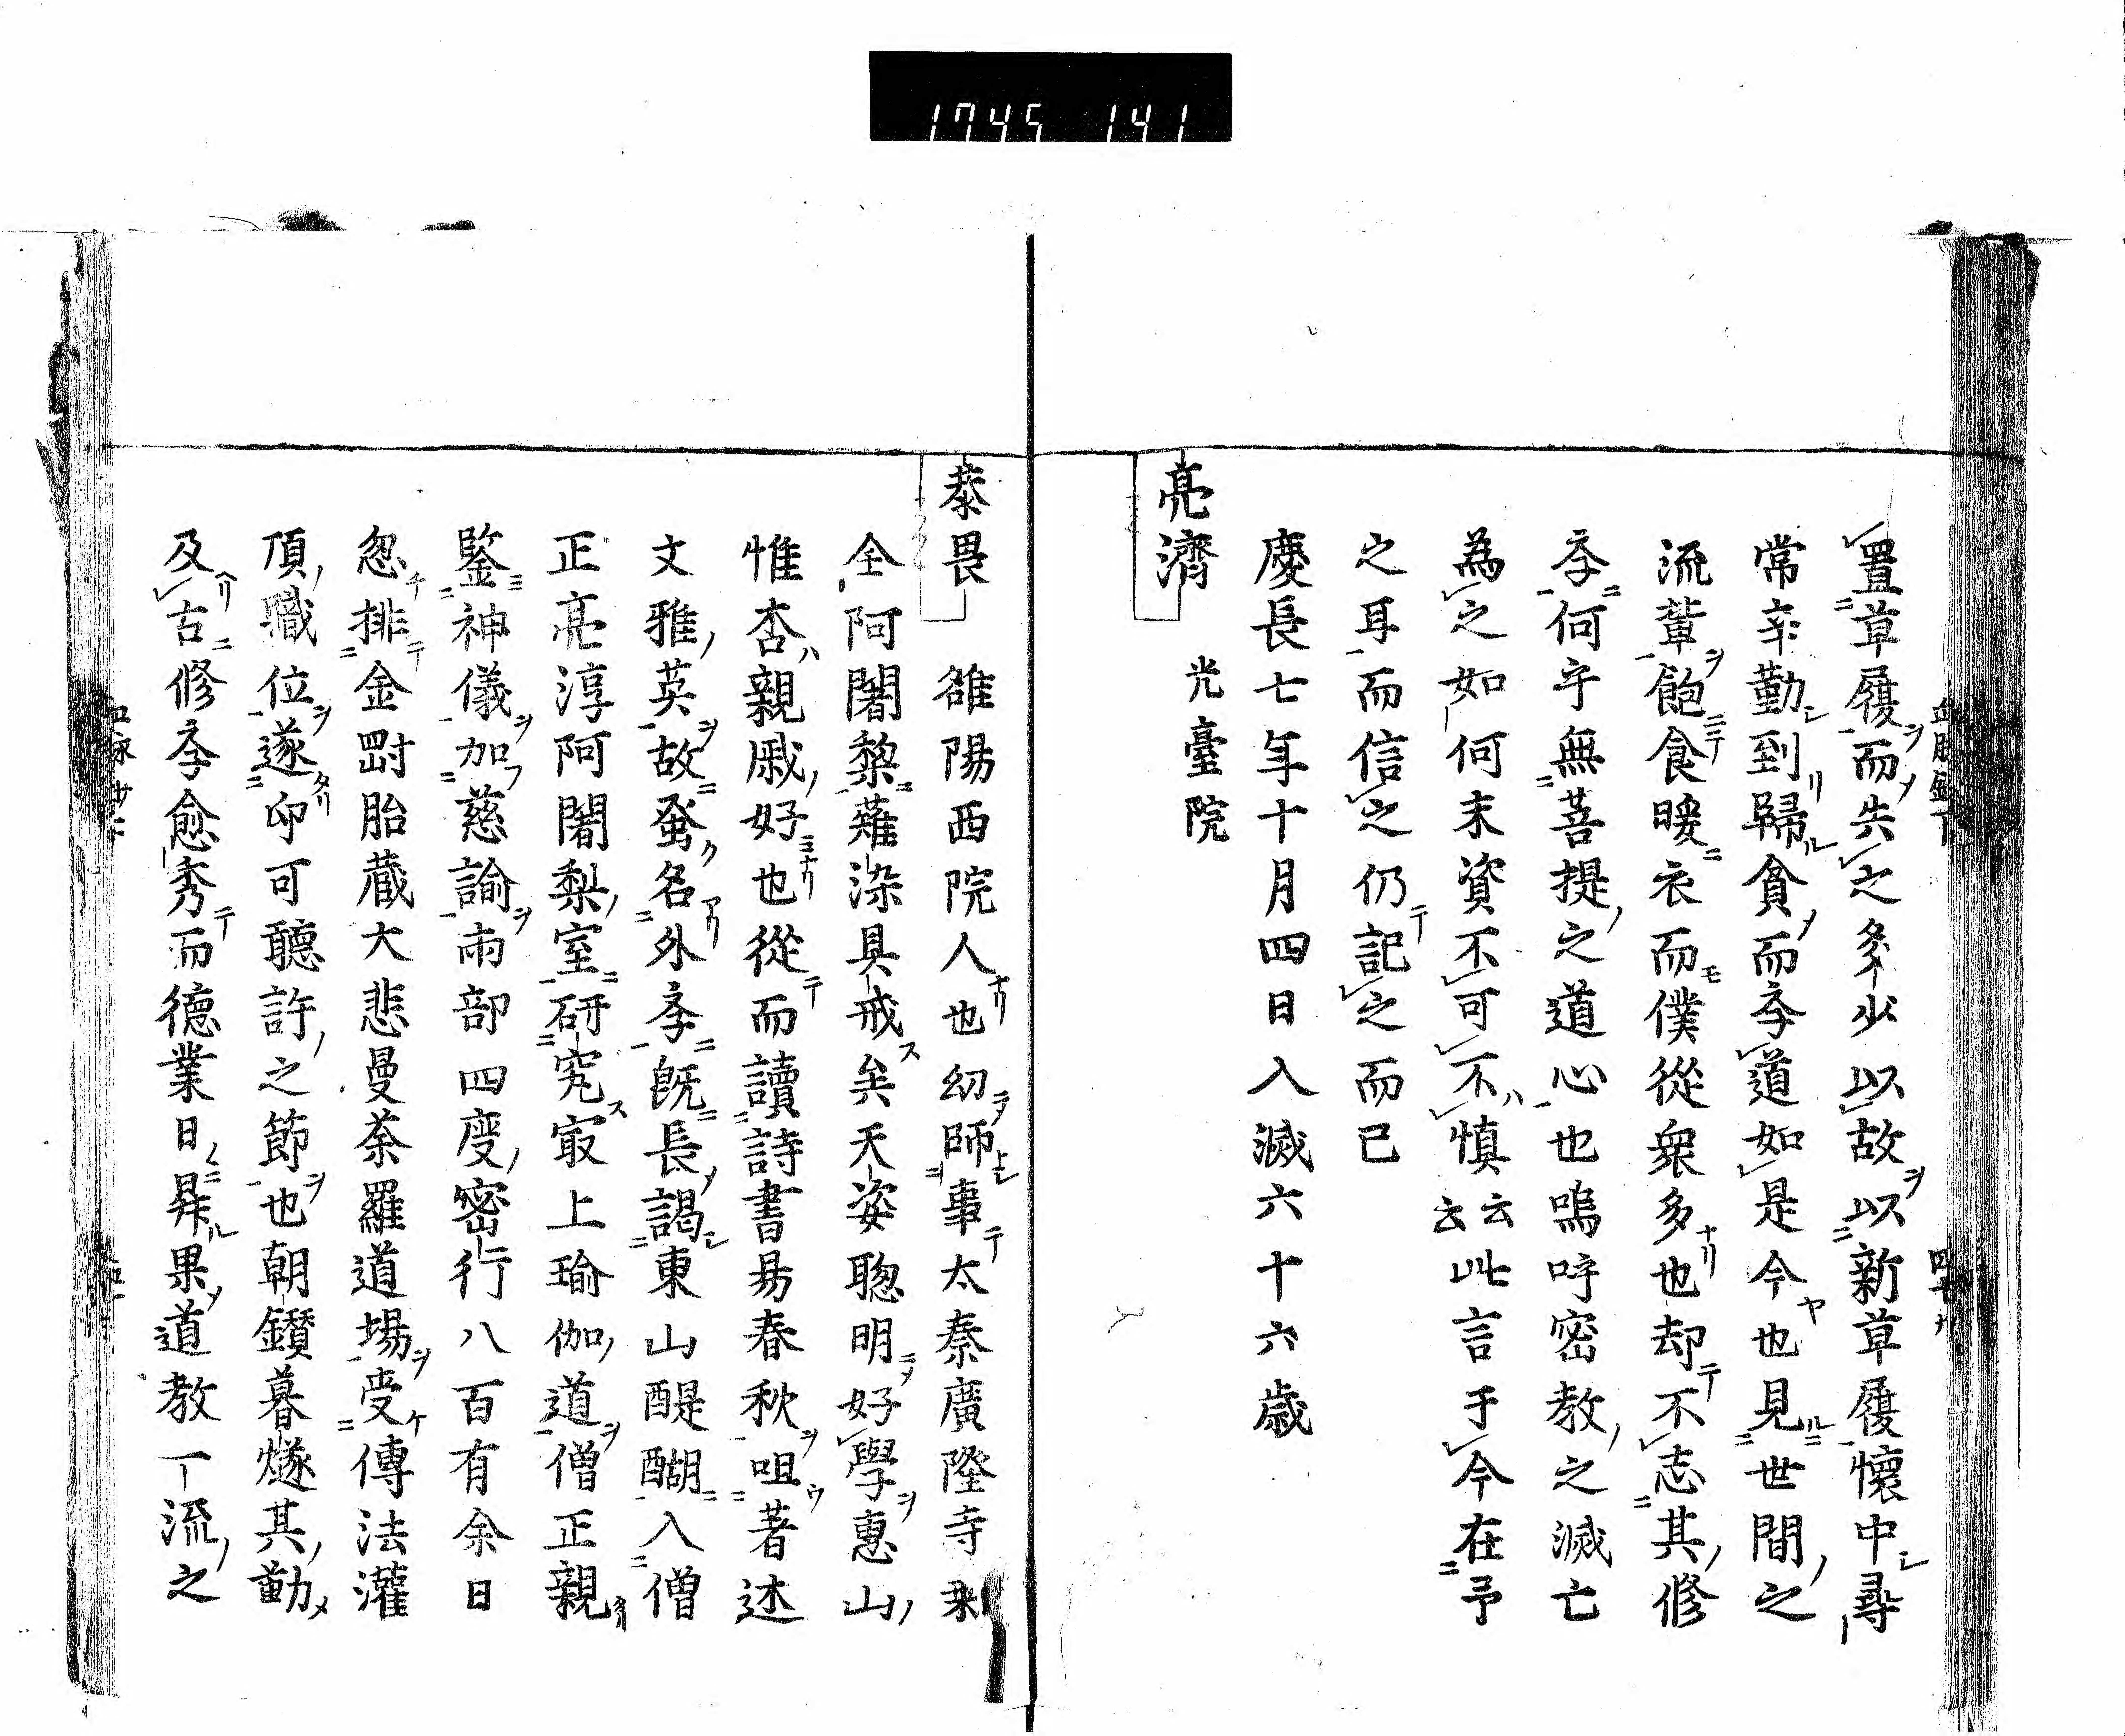 1745 141
置草履而失之多少以故以新草履懷中尋
常辛勤到歸貪而斈道如是今也見世間之
流輩飽食暖衣而僕從衆多也却不志其修
斈何乎無菩提之道心也嗚呼密教之滅亡
為之如何末資不可不慎云云此言于今在予
之耳而信之仍記之而已
慶長七年十月四日入滅六十六歳
亮濟 光臺院
泰畏 雒陽西院人也幻師事太秦廣隆寺
全阿闍黎薙染具戒矣天姿聡明好學惠山
惟杏親戚好也從而讀詩書易春秋咀著述
文雅英故蜚名外斈既長謁東山醍醐入僧
正亮淳阿闍梨室研究冣上瑜伽道僧正親
鑒神儀加慈諭両部四度密行八百有余日
忽排金罸胎蔵大悲曼荼羅道場受傳法灌
頂職位遂印可聽許之節也朝鑚暮燧其勤
及古修斈愈秀而德業日昇果道教一流之